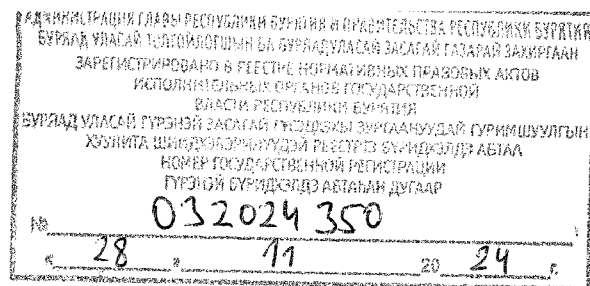 АДМИНИСТРАЦИЯ ГЛАВЫ РЕСПУБЛИКИ БУРЯТИЯ И ПРАВИТЕЛЬСТВА РЕСПУБЛИКИ БУРЯТИЯ
БУРЯАД УЛАСАЙ ТОЛГОЙЛОГШЫН БА БУРЯАД УЛАСАЙ ЗАСАГАЙ ГАЗАРАЙ ЗАХИРГААН
ЗАРЕГИСТРИРОВАНО В РЕЕСТРЕ НОРМАТИВНЫХ ПРАВОВЫХ АКТОВ
ИСПОЛНИТЕЛЬНЫХ ОРГАНОВ ГОСУДАРСТВЕННОЙ
ВЛАСТИ РЕСПУБЛИКИ БУРЯТИЯ
БУРЯАД УЛАСАЙ ГҮРЭНЭЙ ЗАСАГАЙ ЗУРГААНУУДАЙ ГУРИМШУУЛГЫН
ХУУЛИТА РЕЕСТРТЭ БҮРИДХЭЛДЭ АБТАА
НОМЕР ГОСУДАРСТВЕННОЙ РЕГИСТРАЦИИ
ГҮРЭНЭЙ БҮРИДХЭЛДЭ АБТАҺАН ДУГААР
№ 032024350
" 28 " 11 20 24 г.